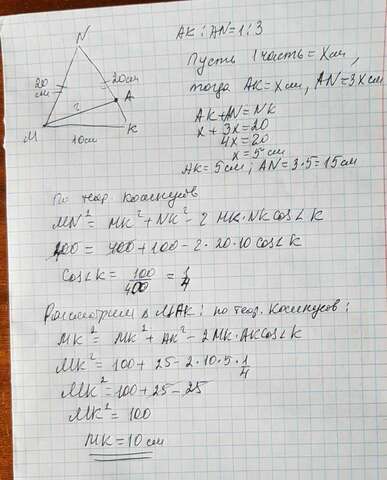 N
20 см
20см
?
A
M
10см
K
AK : AN = 1 : 3
Пусть 1 часть = x см,
тогда AK = x см, AN = 3x см
AK + AN = NK
x + 3x = 20
4x = 20
x = 5 см
AK = 5 см; AN = 3·5 = 15 см
По теор. Косинусов
MN² = MK² + NK² - 2 MK · NK cos∠K
400 = 400 + 100 - 2·20·10 cos∠K
cos∠K = 100/400 = 1/4
Рассмотрим Δ MAK: по теор. Косинусов:
MK² = MK² + AK² - 2MK · AK cos∠K
MK² = 100 + 25 - 2·10·5·1/4
MK² = 100 + 25 - 25
MK² = 100
MK = 10 см